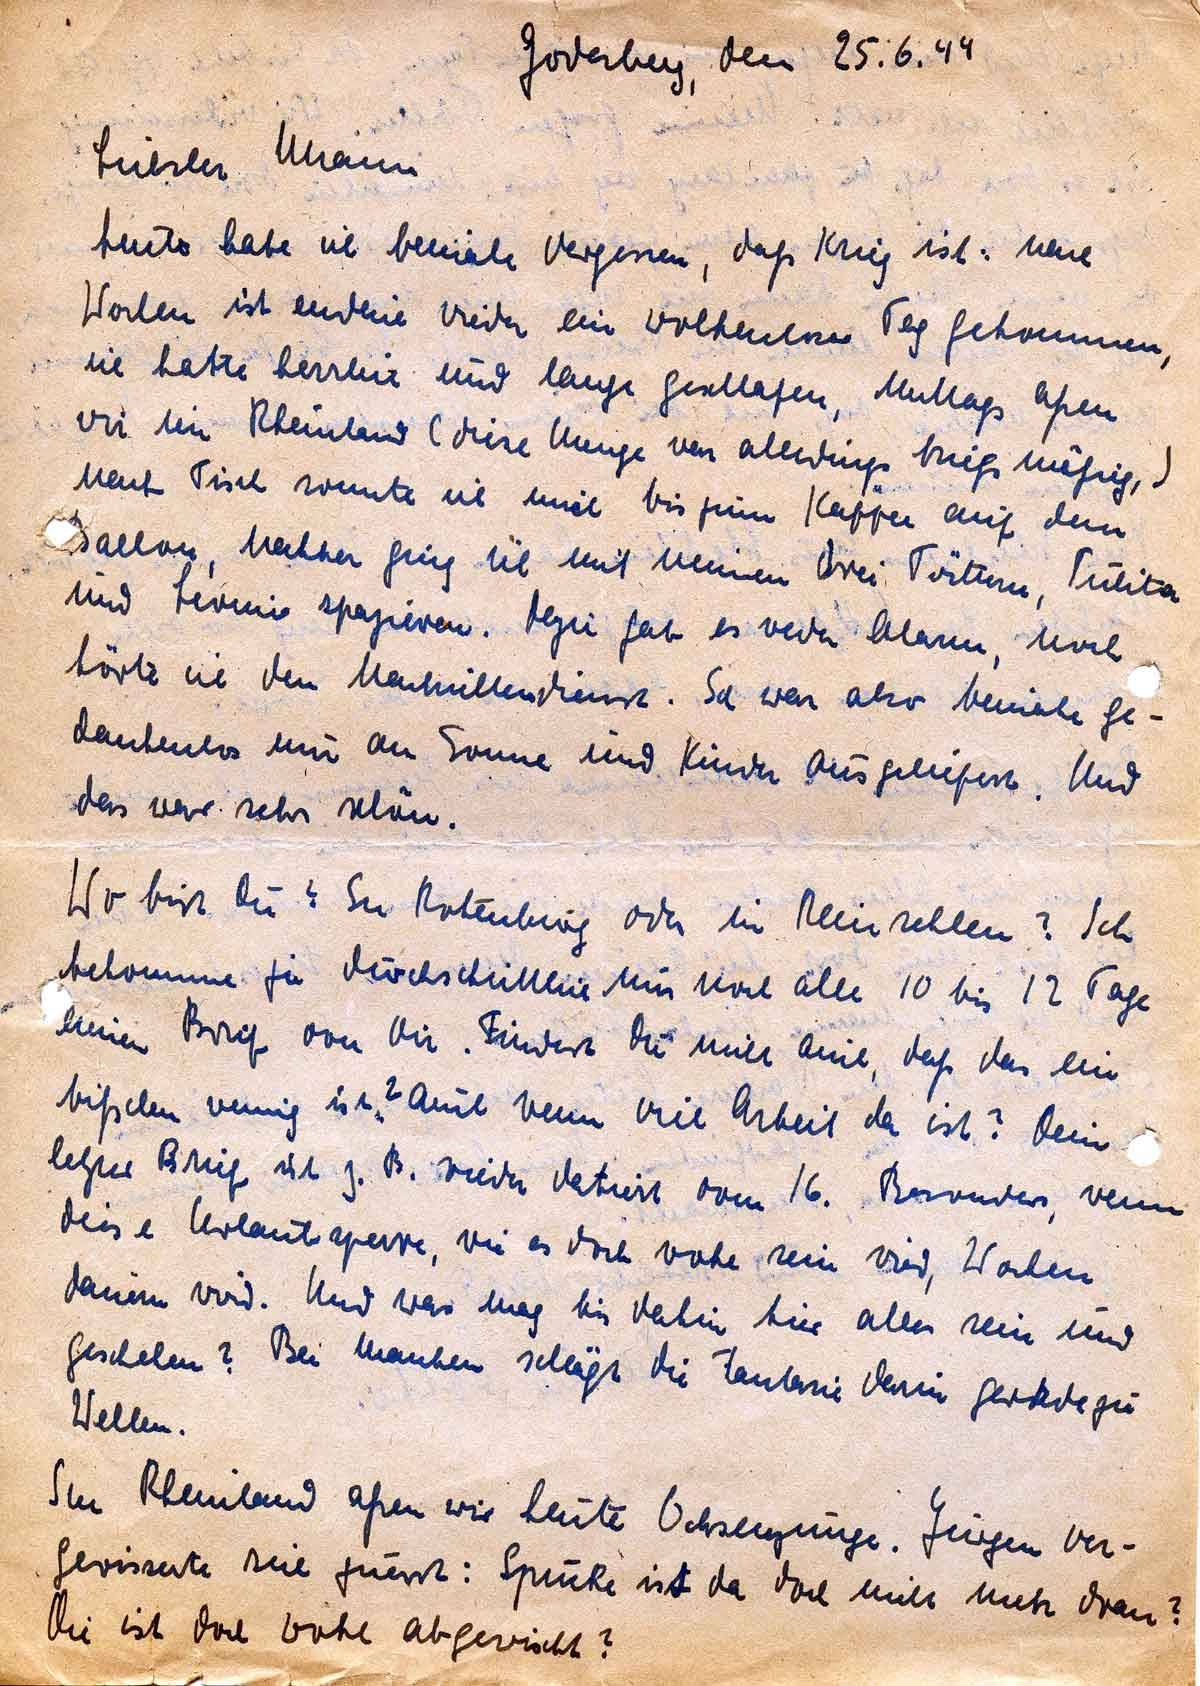 Godesberg, den 25.6.44
Liebster Mann
heute habe ich beinahe vergessen, daß Krieg ist: nach
Wochen ist endlich wieder ein wolkenloser Tag gekommen,
ich hatte herrlich und lange geschlafen, Mittags aßen
wir im Rheinland (diese Menge war allerdings kriegsmäßig,)
nach Tisch sonnte ich mich bis zum Kaffee auf dem
Balkon, nachher ging ich mit meinen drei Töchtern,
und spazieren. Dazu gab es weder Alarm, noch
hörte ich den Nachrichtendienst. So war also beinahe ge-
dankenlos nur an Sonne und Kinder ausgeliefert. Und
das war sehr schön.
Wo bist Du? In Rotenburg oder in Reinsehlen? Ich
bekomme ja durchschnittlich nur noch alle 10 bis 12 Tage
einen Brief von Dir. Findest Du nicht auch, daß das ein
bißchen wenig ist? Auch wenn viel Arbeit da ist? Dein
letzter Brief ist z. B. wieder datiert vom 16. Besonders, wenn
diese Urlaubsperre, wie es doch wohl sein wird, Wochen
dauern wird. Und was mag bis dahin hier alles sein und
geschehen? Bei Manchen schlägt die Fantasie darin geradezu
Wellen.
Im Rheinland aßen wir heute Ochsenzunge. Jürgen ver-
gewisserte sich zuerst: Spucke ist da doch nicht mehr dran?
Die ist doch wohl abgewischt?